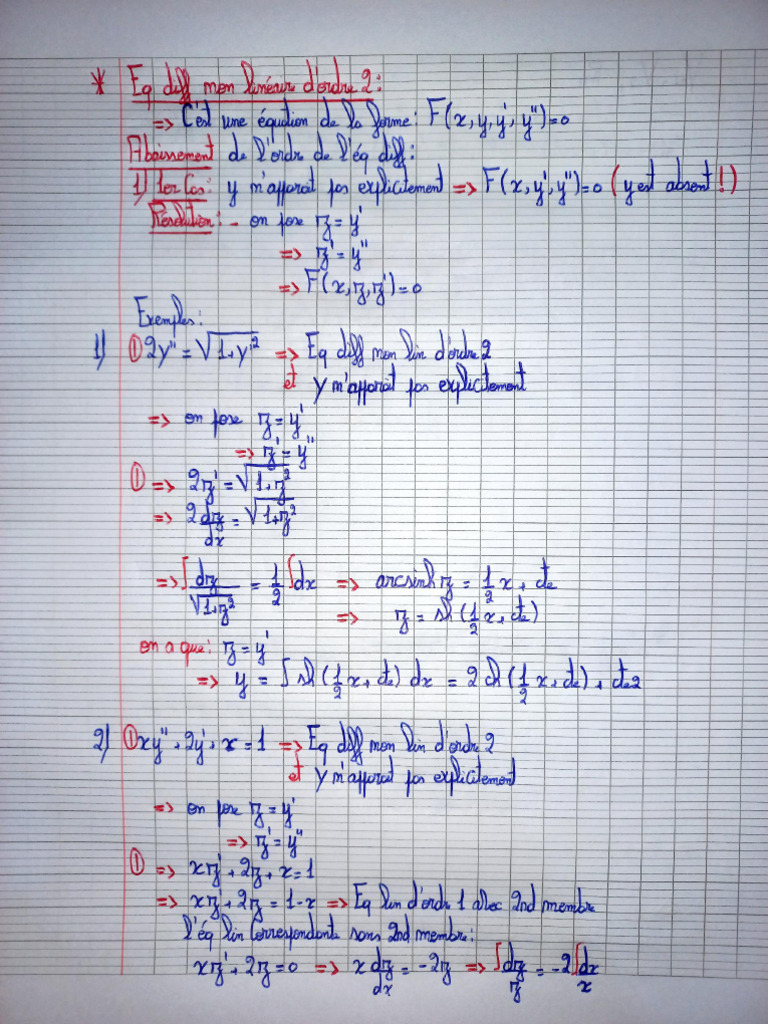 * Eq diff non linéaire d'ordre 2:
=> C'est une équation de la forme: F(x, y, y', y'')=0
Abaissement de l'ordre de l'éq diff:
1) 1er Cas: y n'apparait pas explicitement => F(x, y', y'')=0 (y est absent!)
Résolution: - on pose z = y'
=> z' = y''
=> F(x, z, z')=0
Exemples:
1) ① 2y'' = √(1+y'²) => Eq diff non lin d'ordre 2
et y n'apparait pas explicitement
=> on pose z = y'
=> z' = y''
① => 2z' = √(1+z²)
=> 2 dz/dx = √(1+z²)
=> ∫ dz/√(1+z²) = 1/2 ∫ dx => arcsinh z = 1/2 x + cte
=> z = sh(1/2 x + cte)
on a que: z = y'
=> y = ∫ sh(1/2 x + cte) dx = 2 ch(1/2 x + cte) + cte2
2) ① xy'' + 2y' + x = 1 => Eq diff non lin d'ordre 2
et y n'apparait pas explicitement
=> on pose z = y'
=> z' = y''
① => xz' + 2z + x = 1
=> xz' + 2z = 1-x => Eq lin d'ordre 1 avec 2nd membre
L'éq lin correspondante sans 2nd membre:
xz' + 2z = 0 => x dz/dx = -2z => ∫ dz/z = -2 ∫ dx/x